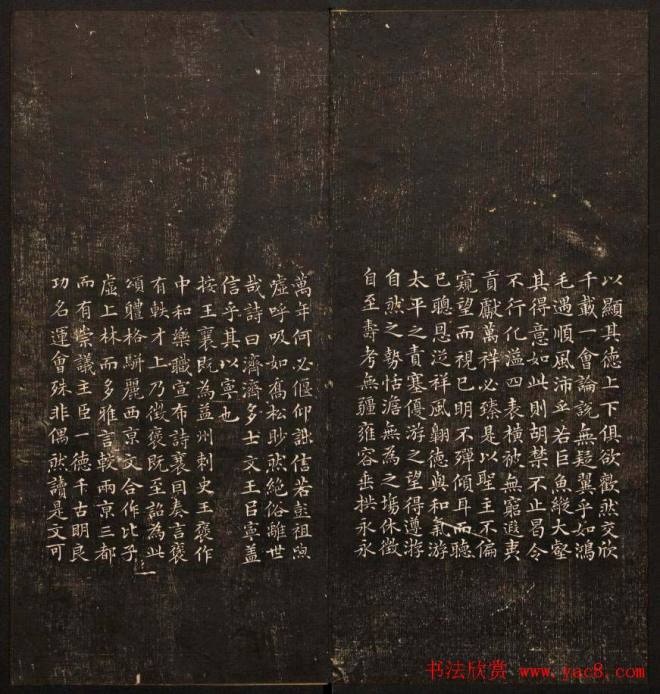 以顯其德上下俱欲歡然交欣
千載一會論說無疑翼乎如鴻
毛遇順風沛乎若巨魚縱大壑
其得意如此則胡禁不止曷令
不行化溢四表橫被無窮遐夷
貢獻萬祥必臻是以聖主不徧
窺望而視已明不殫傾耳而聽
已聰恩從祥風翱德與和氣游
太平之責塞優游之望得遵游
自然之勢恬澹無為之場休徵
自至壽考無疆雍容垂拱永永
萬年何必偃仰詘信若彭祖喣
噓呼吸如喬松眇然絕俗離世
哉詩曰濟濟多士文王㠯寧蓋
信乎其以寧也
按王襄既為益州刺史王褒作
中和樂職宣布詩襄因奏言褒
有軼才上乃徵褒既至詔為此
頌體格駢麗西京文合作比子
虛上林而多雅言較兩京三都
而有崇議主臣一德千古明良
功名運會殊非偶然讀是文可
书法欣赏 www.yac8.com